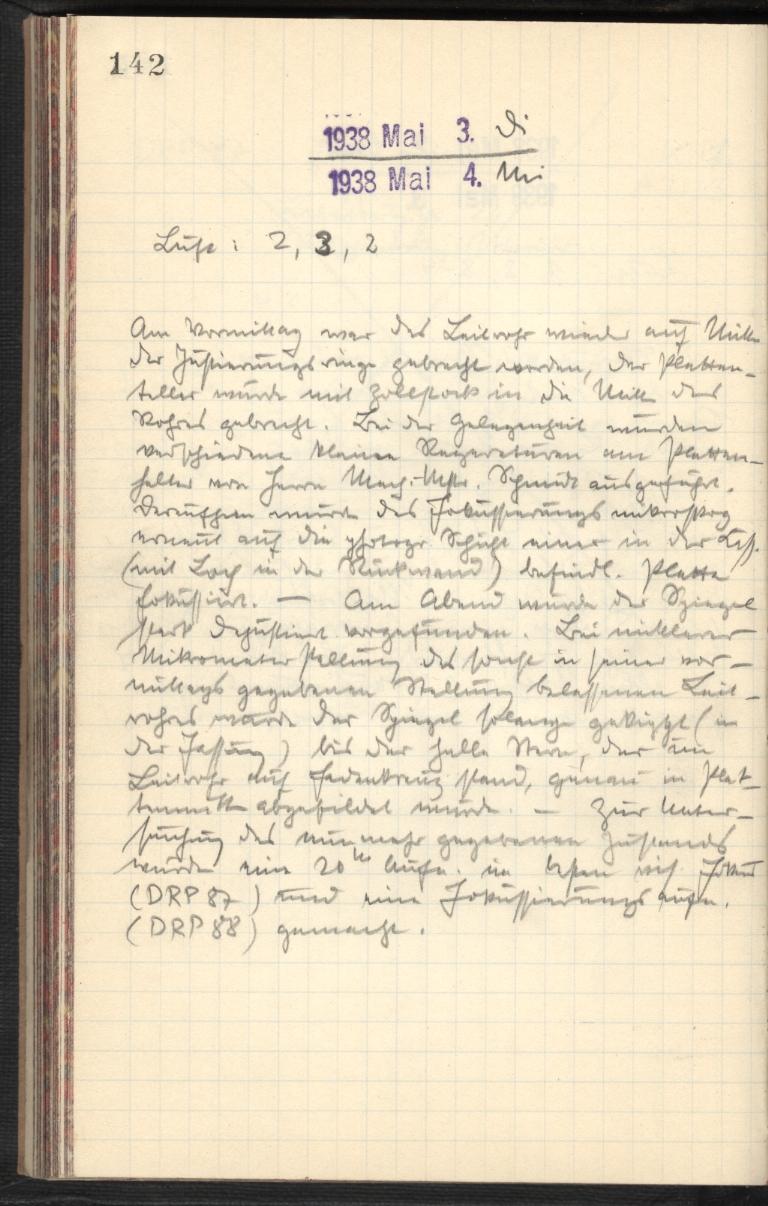 142
1938 Mai 3. Di
1938 Mai 4. Mi
Luft : 2, 3, 2
Am Vormittag war das Leitrohr wieder auf Mitte
der Justierungsringe gebracht worden, der Platten-
teller wurde mit Zollstock in die Mitte des
Rohres gebracht. Bei der Gelegenheit wurden
verschiedene kleine Reparaturen am Platten-
halter von Herrn Mech.-Mstr. Schmidt ausgeführt.
Daraufhin wurde das Fokussierungsmikroskop
erneut auf die photogr Schicht einer in der Kass.
(mit Loch in der Rückwand) befindl. Platte
fokussiert. — Am Abend wurde der Spiegel
stark dejustiert vorgefunden. Bei mittlerer
Mikrometerstellung des sonst in seiner vor-
mittags gegebenen Stellung belassenen Leit-
rohres wurde der Spiegel solange gekippt (in
der Fassung) bis der helle Stern, der im
Leitrohr auf Fadenkreuz stand, genau in Plat-
tenmitte abgebildet wurde. — Zur Unter-
suchung des nunmehr gegebenen Zustands
wurde eine 20 Aufn. im besten vis. Fokus
(DRP 87) und eine Fokussierungsaufn.
(DRP 88) gemacht.